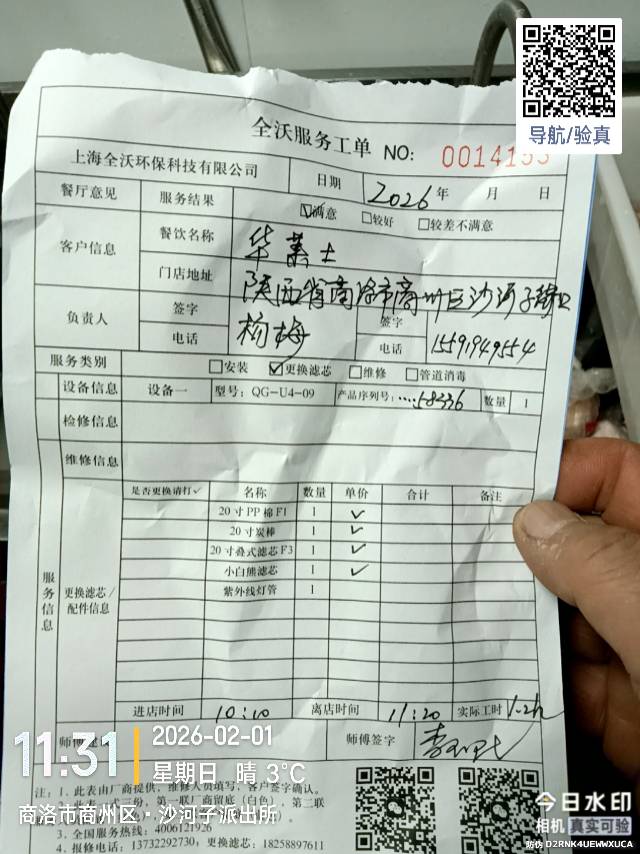 导航/验真
全沃服务工单 NO: 0014153
上海全沃环保科技有限公司 日期 2026年 月 日
餐厅意见 服务结果 ☑满意 □较好 □较差不满意
客户信息 餐饮名称 华莱士
门店地址 陕西省商洛市商州区沙河子镇
负责人 签字 杨梅 签字
电话 电话 15591949554
服务类别 □安装 ☑更换滤芯 □维修 □管道消毒
设备信息 设备一 型号: QG-U4-09 产品序列号: ····58336 数量 1
检修信息
维修信息
是否更换请打✓ 名称 数量 单价 合计 备注
20寸PP棉F1 1 ✓
20寸炭棒 1 ✓
20寸叠式滤芯F3 1 ✓
小白熊滤芯 1 ✓
紫外线灯管 1
服务信息
更换滤芯/
配件信息
进店时间 10:10 离店时间 11:20 实际工时 1.2h
师傅建议 师傅签字
11:31 2026-02-01
星期日 晴 3℃
商洛市商州区·沙河子派出所
注: 1、此表由厂商提供, 维修人员填写, 客户签字确认。
第一联厂商留底(白色), 第二联
3、全国服务热线: 4006121926
4、报修电话: 13732292730; 更换滤芯: 18258897611
今日水印
相机 真实可验
防伪 D2RNK4UEWWXUCA